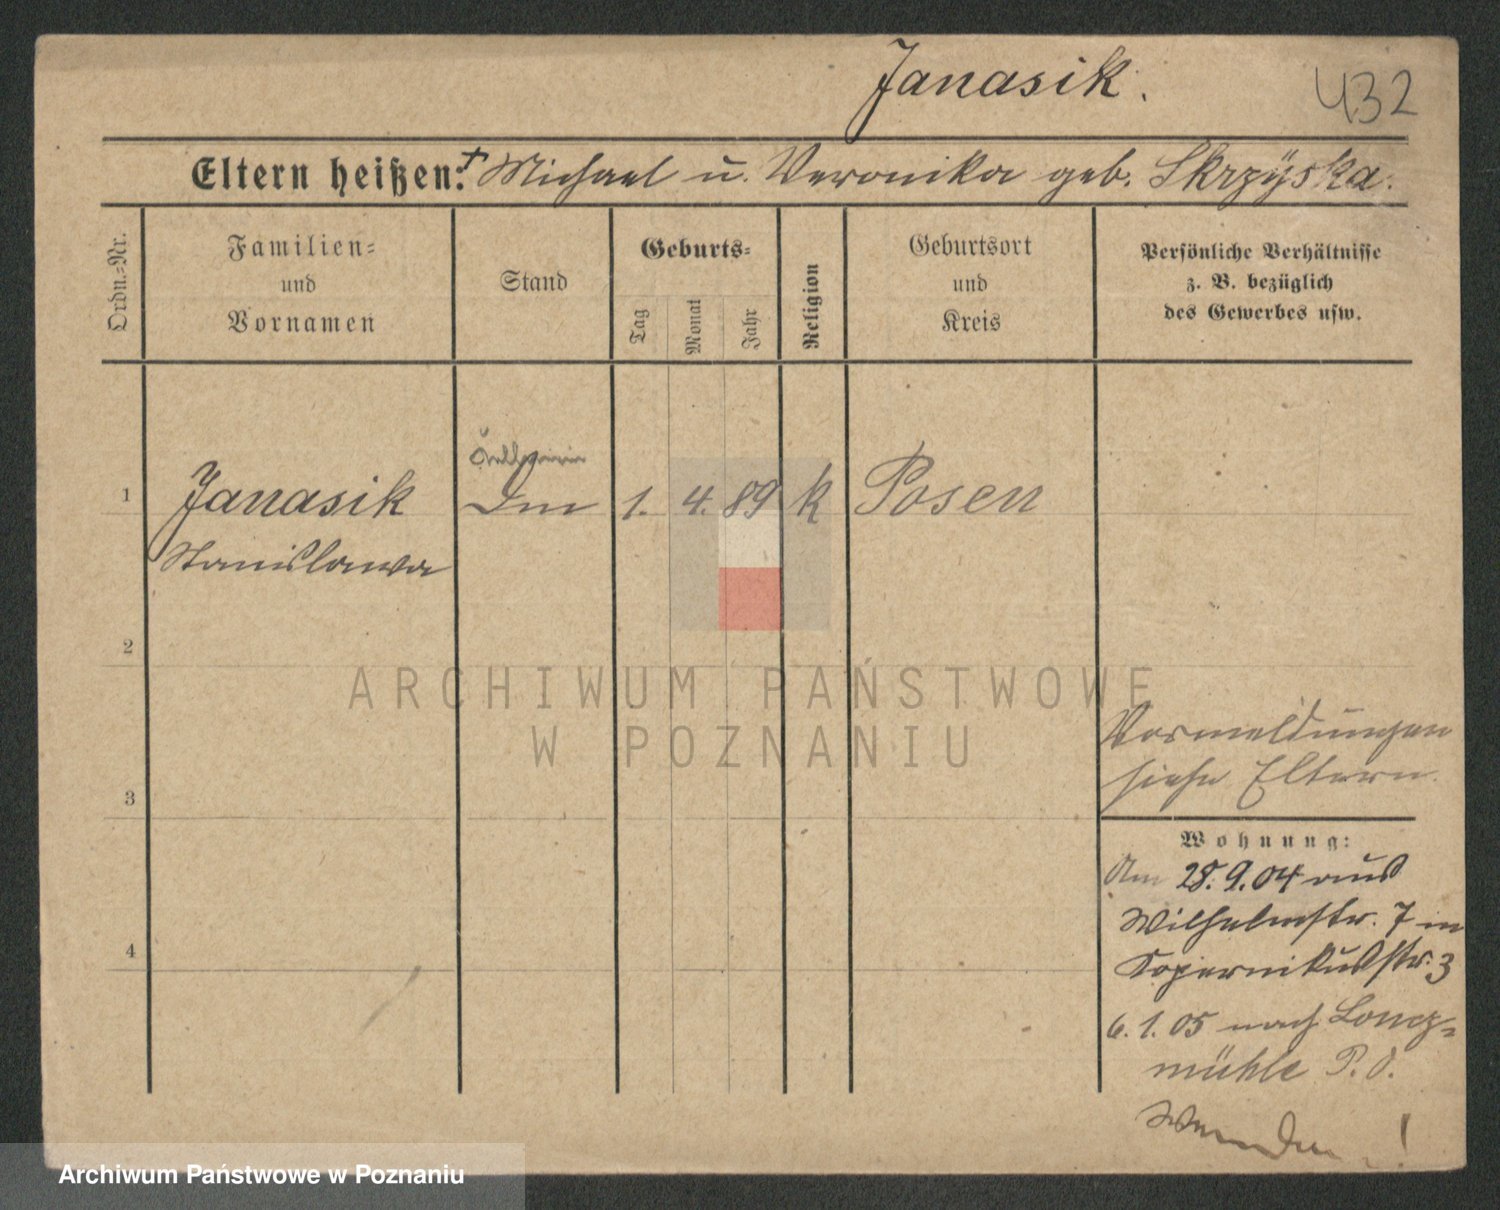 Janasik.
432
Eltern heißen: † Michael u. Veronika geb. Skrzÿska.
Ordn.=Nr.
Familien=
und
Vornamen
Stand
Geburts=
Tag
Monat
Jahr
Religion
Geburtsort
und
Kreis
Persönliche Verhältnisse
z. B. bezüglich
des Gewerbes usw.
1 Janasik 1. 4. 89 k Posen
Stanislawa
2
3
4
Vormeldungen
siehe Eltern.
Wohnung:
Am 28.9.04 aus
Wilhelmstr. 7 in
Kopernikusstr. 3
6.1.05 nach
mühle P. O.
Wenden!
ARCHIWUM PAŃSTWOWE
W POZNANIU
Archiwum Państwowe w Poznaniu